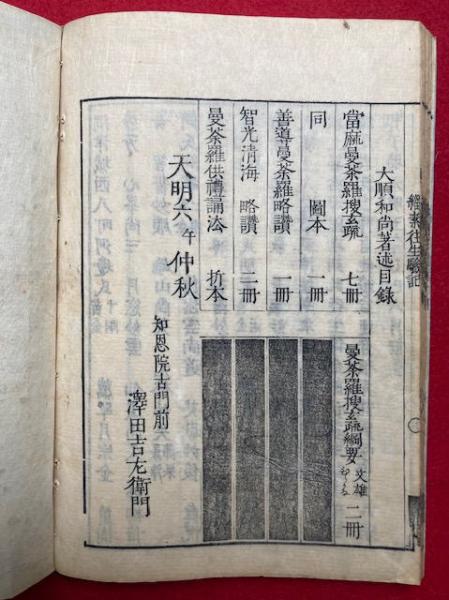 大順和尚著述目録
當麻曼荼羅搜玄疏 七冊
同 圖本 一冊
善導曼荼羅略讚 一冊
智光清海 略讚 二冊
曼荼羅供禮誦法 折本
曼荼羅搜玄疏綱要 文雄 二冊
天明六午仲秋
知恩院古門前
澤田吉左衛門